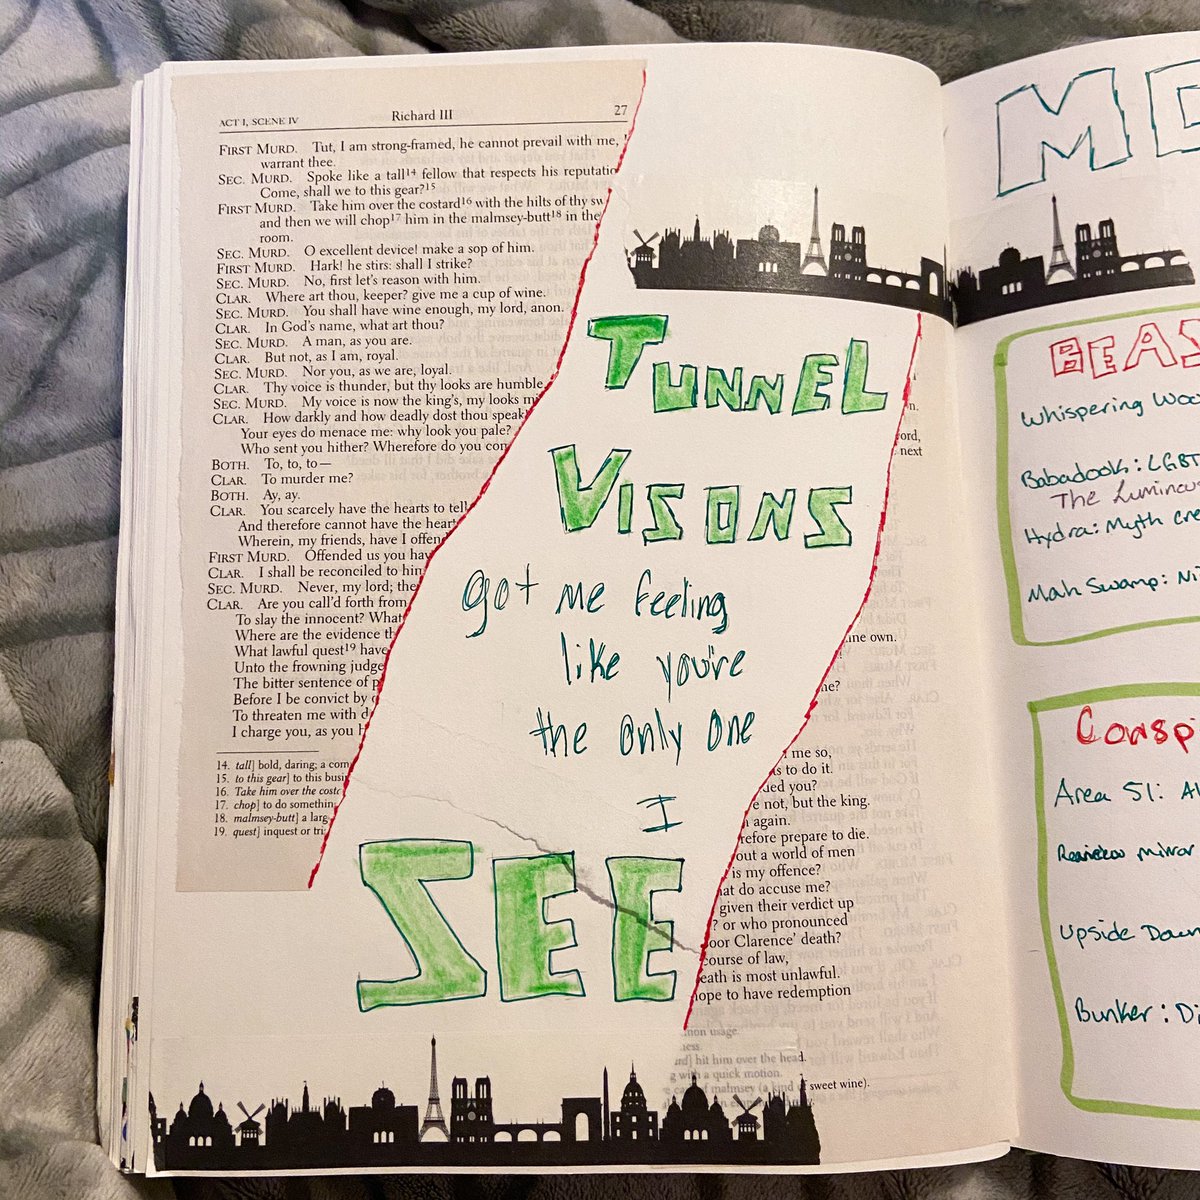 ACT I, SCENE IV Richard III 27
FIRST MURD. Tut, I am strong-framed, he cannot prevail with me,
warrant thee.
SEC. MURD. Spoke like a tall14 fellow that respects his reputatio
Come, shall we to this gear?15
FIRST MURD. Take him over the costard16 with the hilts of thy sw
and then we will chop17 him in the malmsey-butt18 in the
room.
SEC. MURD. O excellent device! make a sop of him.
FIRST MURD. Hark! he stirs: shall I strike?
SEC. MURD. No, first let's reason with him.
CLAR. Where art thou, keeper? give me a cup of wine.
SEC. MURD. You shall have wine enough, my lord, anon.
CLAR. In God's name, what art thou?
SEC. MURD. A man, as you are.
CLAR. But not, as I am, royal.
SEC. MURD. Nor you, as we are, loyal.
CLAR. Thy voice is thunder, but thy looks are humble.
SEC. MURD. My voice is now the king's, my looks mi
CLAR. How darkly and how deadly dost thou speak
Your eyes do menace me: why look you pale?
Who sent you hither? Wherefore do you com
BOTH. To, to, to—
CLAR. To murder me?
BOTH. Ay, ay.
CLAR. You scarcely have the hearts to tell
And therefore cannot have the heart
Wherein, my friends, have I offend
FIRST MURD. Offended us you hav
CLAR. I shall be reconciled to him
SEC. MURD. Never, my lord; the
CLAR. Are you call'd forth from
To slay the innocent? What
Where are the evidence th
What lawful quest19 have
Unto the frowning judge
The bitter sentence of p
Before I be convict by c
To threaten me with d
I charge you, as you h
14. tall] bold, daring; a com
15. to this gear] to this busi
16. Take him over the costa
17. chop] to do something
18. malmsey-butt] a larg
19. quest] inquest or tri
TUNNEL
VISONS
got me feeling
like you're
the only one
I
SEE
ord,
next
ine own.
me?
me so,
s to do it.
ded you?
e not, but the king.
again.
refore prepare to die.
out a world of men
is my offence?
at do accuse me?
given their verdict up
? or who pronounced
oor Clarence' death?
ourse of law,
eath is most unlawful.
ope to have redemption
mon usage.
ness.
ard] hit him over the head.
g with a quick motion.
of malmsey (a kind of sweet wine).
MO
BEAS
Whispering Woo
Babadook: LGBT
The Luminous
Hydra: Myth cre
Mah Swamp: Ni
Conspi
Area 51: Al
mirror
Upside Down
Bunker: Di